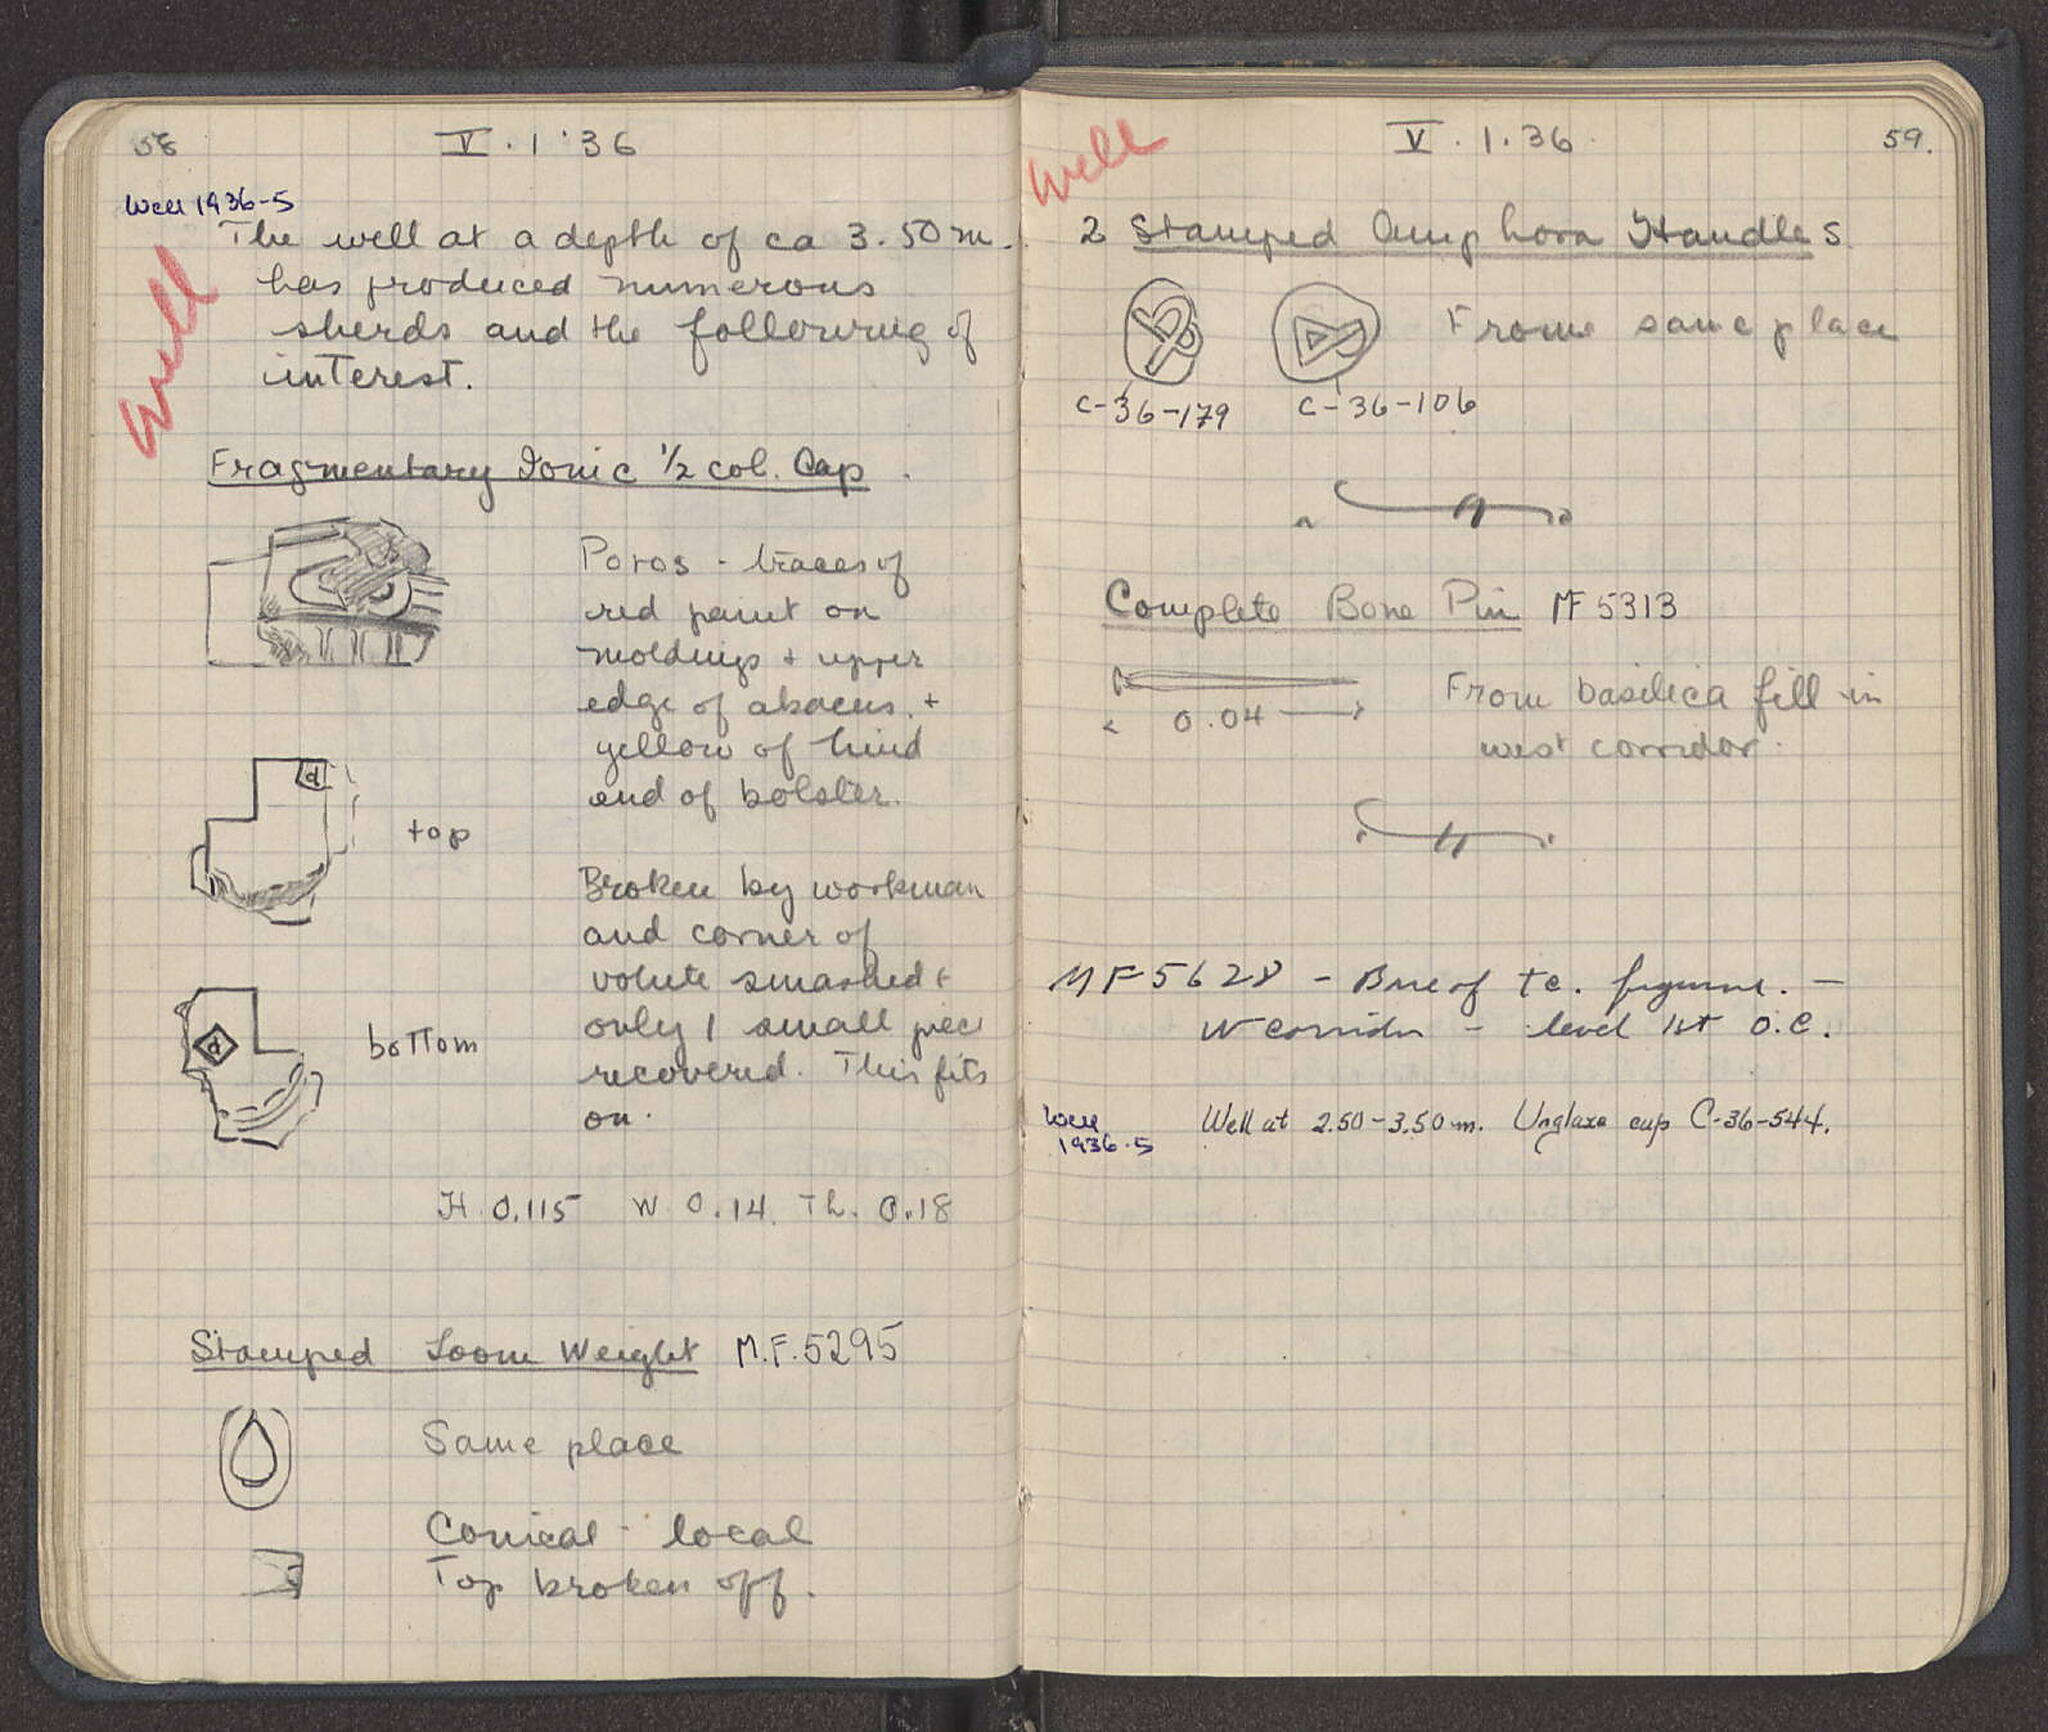 58
V . 1 '36
Well 1936-5
Well
The well at a depth of ca 3.50 m.
has produced numerous
sherds and the following of
interest.
Fragmentary Ionic ½ col. Cap.
Poros - traces of
red paint on
moldings + upper
edge of abacus. +
yellow of hind
end of bolster.
d
top
Broken by workman
and corner of
volute smashed +
only 1 small piece
recovered. This fits
on.
d
bottom
H. 0.115 W. 0.14. Th. 0.18
Stamped Loom Weight M.F. 5295
Same place
Conical - local
Top broken off.
Well
V . 1. 36
59.
2 Stamped Amphora Handles
From same place
C-36-179 C-36-106
Complete Bone Pin MF 5313
0.04
From basilica fill in
west corridor.
MF 5628 - Base of tc. figurine. -
W corridor - level 1st O.C.
Well
1936-5
Well at 2.50-3.50 m. Unglaze cup C-36-544.